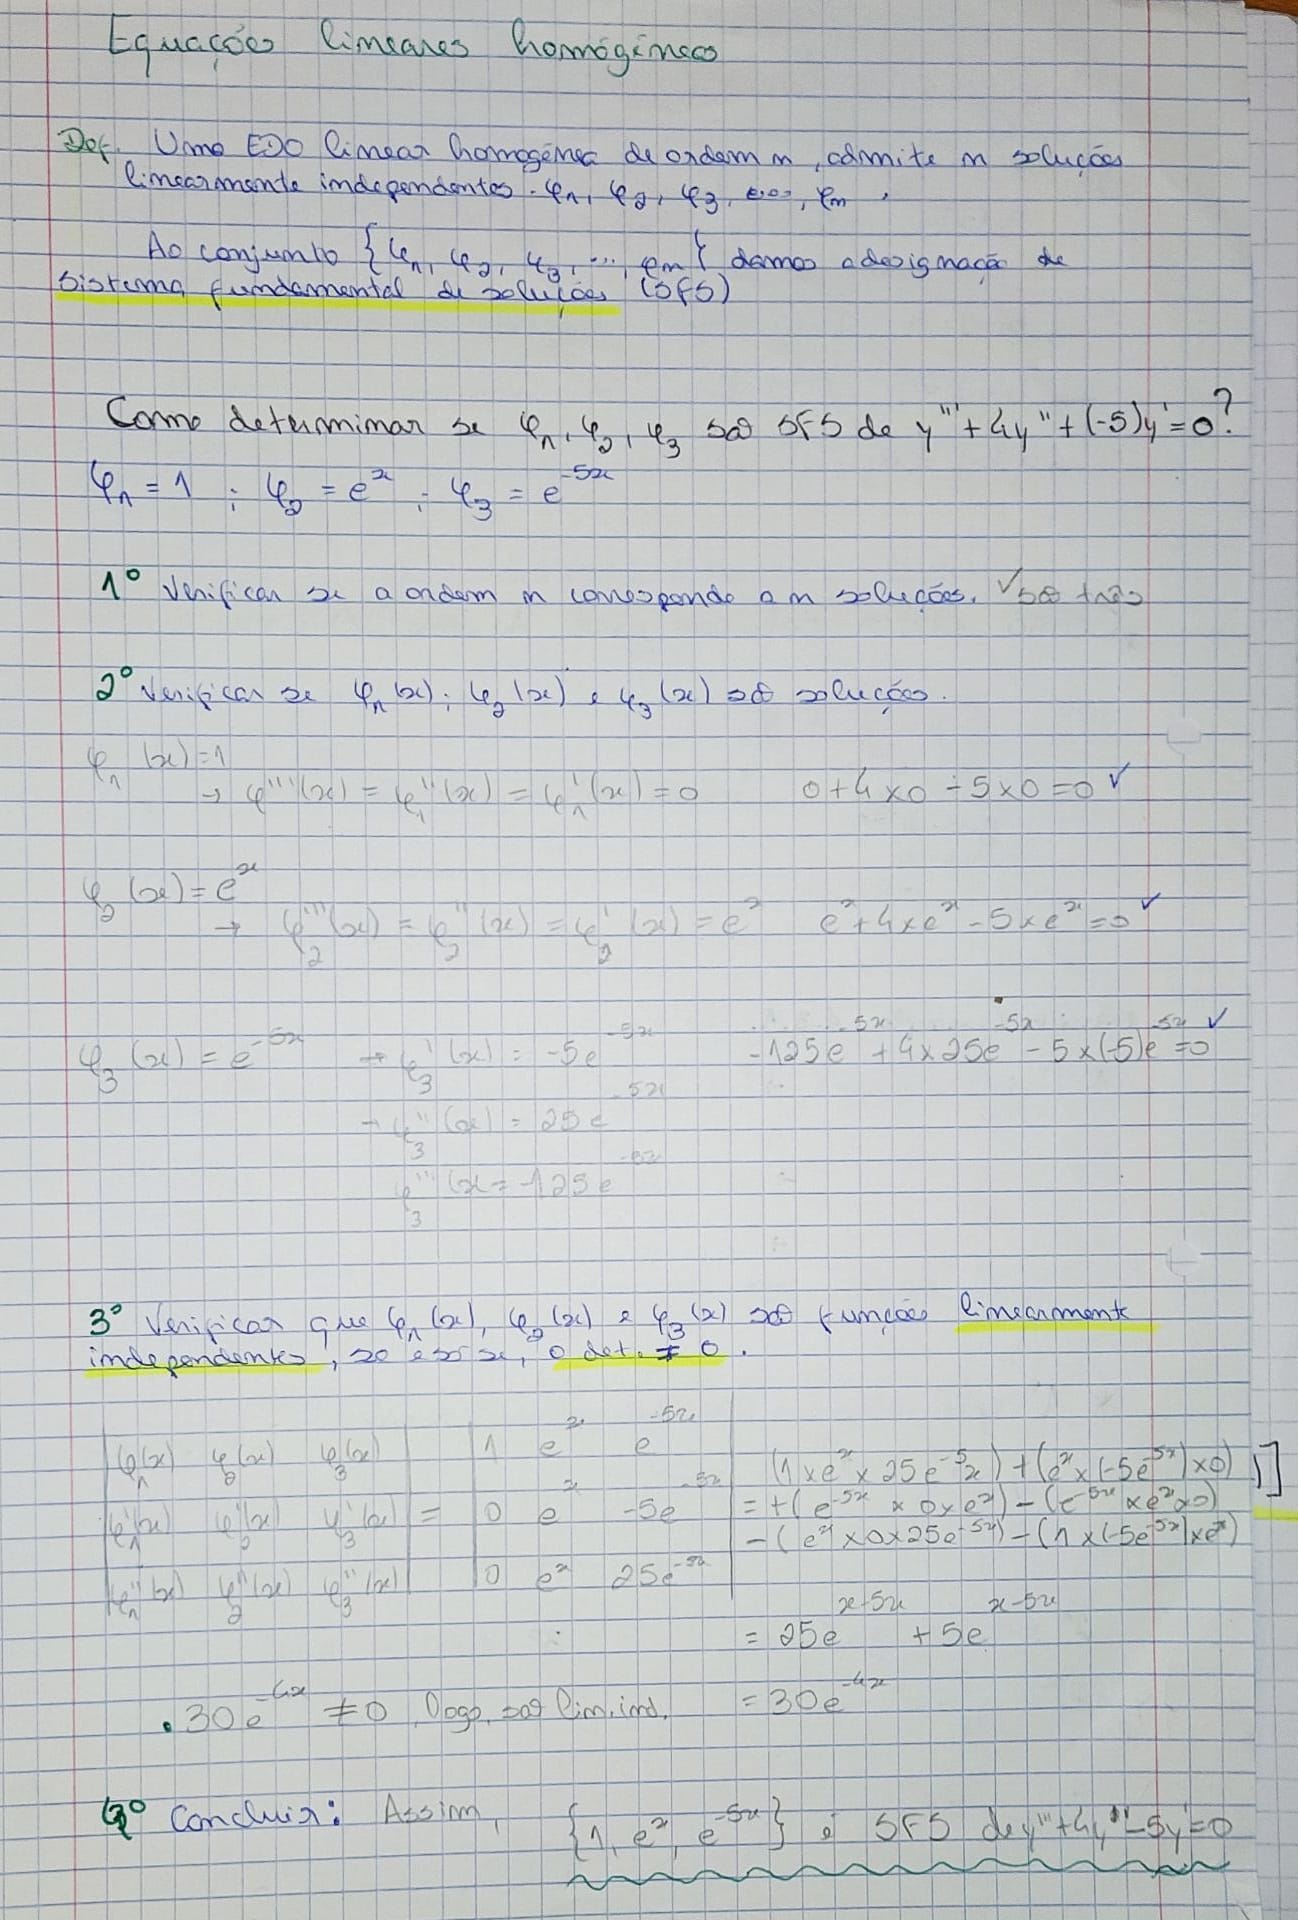 Equações lineares homogéneas
Def. Uma EDO linear homogénea de ordem n, admite n soluções
linearmente independentes. φ₁, φ₂, φ₃, ..., φn.
Ao conjunto {φ₁, φ₂, φ₃, ..., φn} damos a designação de
sistema fundamental de soluções (SFS)
Como determinar se φ₁, φ₂, φ₃ são SFS de y'''+4y''+(-5)y'=0?
φ₁ = 1 ; φ₂ = e^x ; φ₃ = e^-5x
1º Verificar se a ordem n corresponde a n soluções. √ são três
2º Verificar se φ₁(x); φ₂(x) e φ₃(x) são soluções.
φ₁(x)=1
→ φ'''(x) = φ₁''(x) = φ₁'(x) = 0 0+4×0-5×0=0 ✓
φ₂(x) = e^x
→ φ₂'''(x) = φ₂''(x) = φ₂'(x) = e^x e^x+4×e^x-5×e^x=0 ✓
φ₃(x) = e^-5x → φ₃'(x) = -5e^-5x -125e^-5x+4×25e^-5x-5×(-5)e^-5x=0 ✓
→ φ₃''(x) = 25e^-5x
φ₃'''(x = -125e^-5x
3º Verificar que φ₁(x), φ₂(x) e φ₃(x) são funções linearmente
independentes, só e só se, o det. ≠ 0.
|φ₁(x) φ₂(x) φ₃(x)| |1 e^x e^-5x| (1×e^x×25e^-5x)+(e^x×(-5e^-5x)×0) )]
|φ₁'(x) φ₂'(x) φ₃'(x)| = |0 e^x -5e^-5x| =+(e^-5x×0×e^x)-(e^-5x×e^x×0)
-(e^x×0×25e^-5x)-(1×(-5e^-5x)×e^x)
|φ₁''(x) φ₂''(x) φ₃''(x)| |0 e^x 25e^-5x|
= 25e^x-5x + 5e^x-5x
. 30e^-4x ≠ 0, logo, são lin. ind. = 30e^-4x
4º Concluir: Assim, {1, e^x, e^-5x} é SFS de y'''+4y''-5y'=0